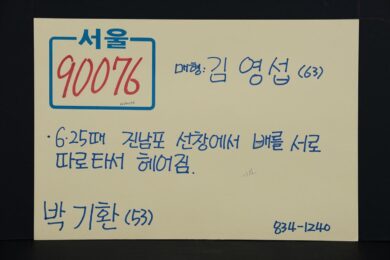 서울
90076
매형: 김영섭 (63)
· 6·25때 진남포 선창에서 배를 서로
따로타서 헤어짐.
박기환 (53)
834-1240